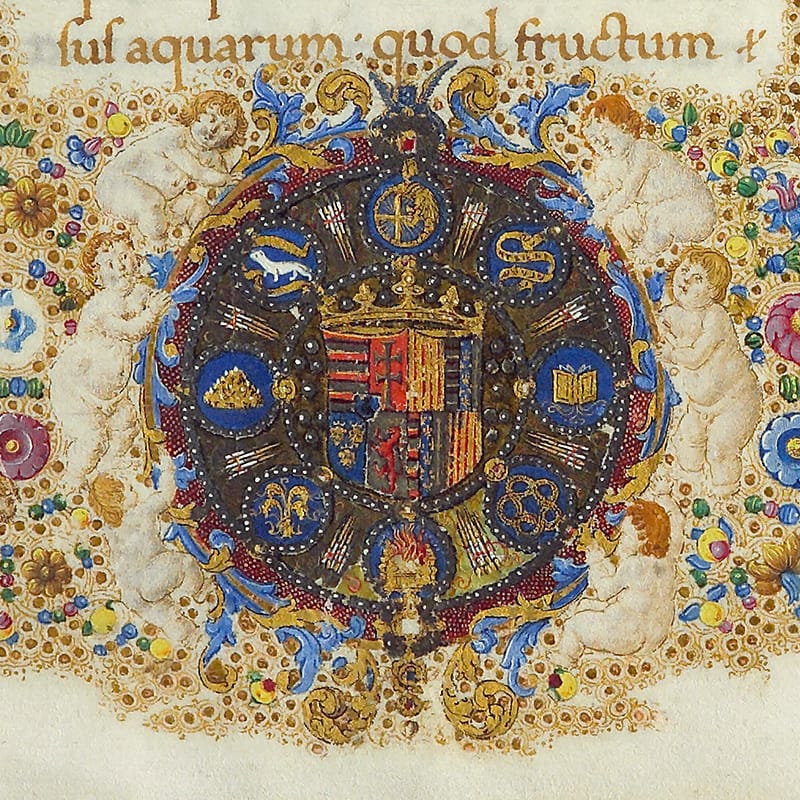 sus aquarum: quod fructum &